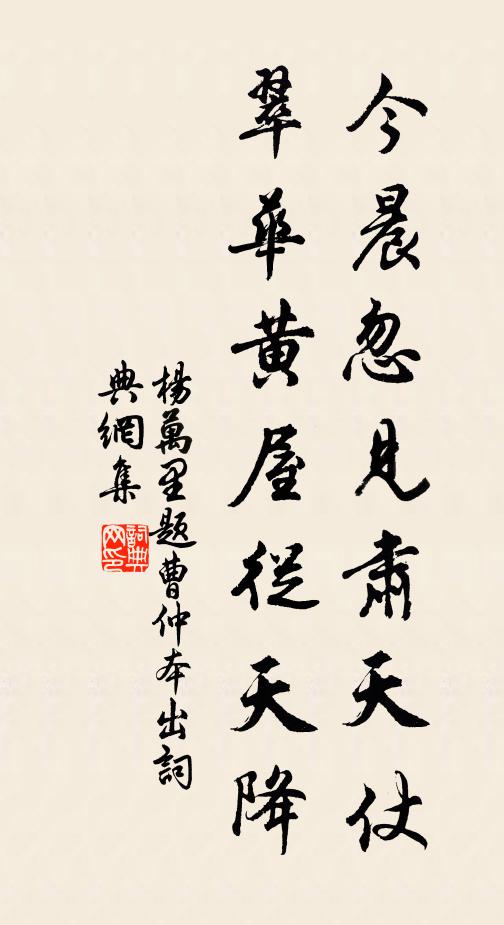 今晨忽見肅天仗
翠華黃屋從天降
楊萬里題曹仲本出詞
典網集
詞典網印